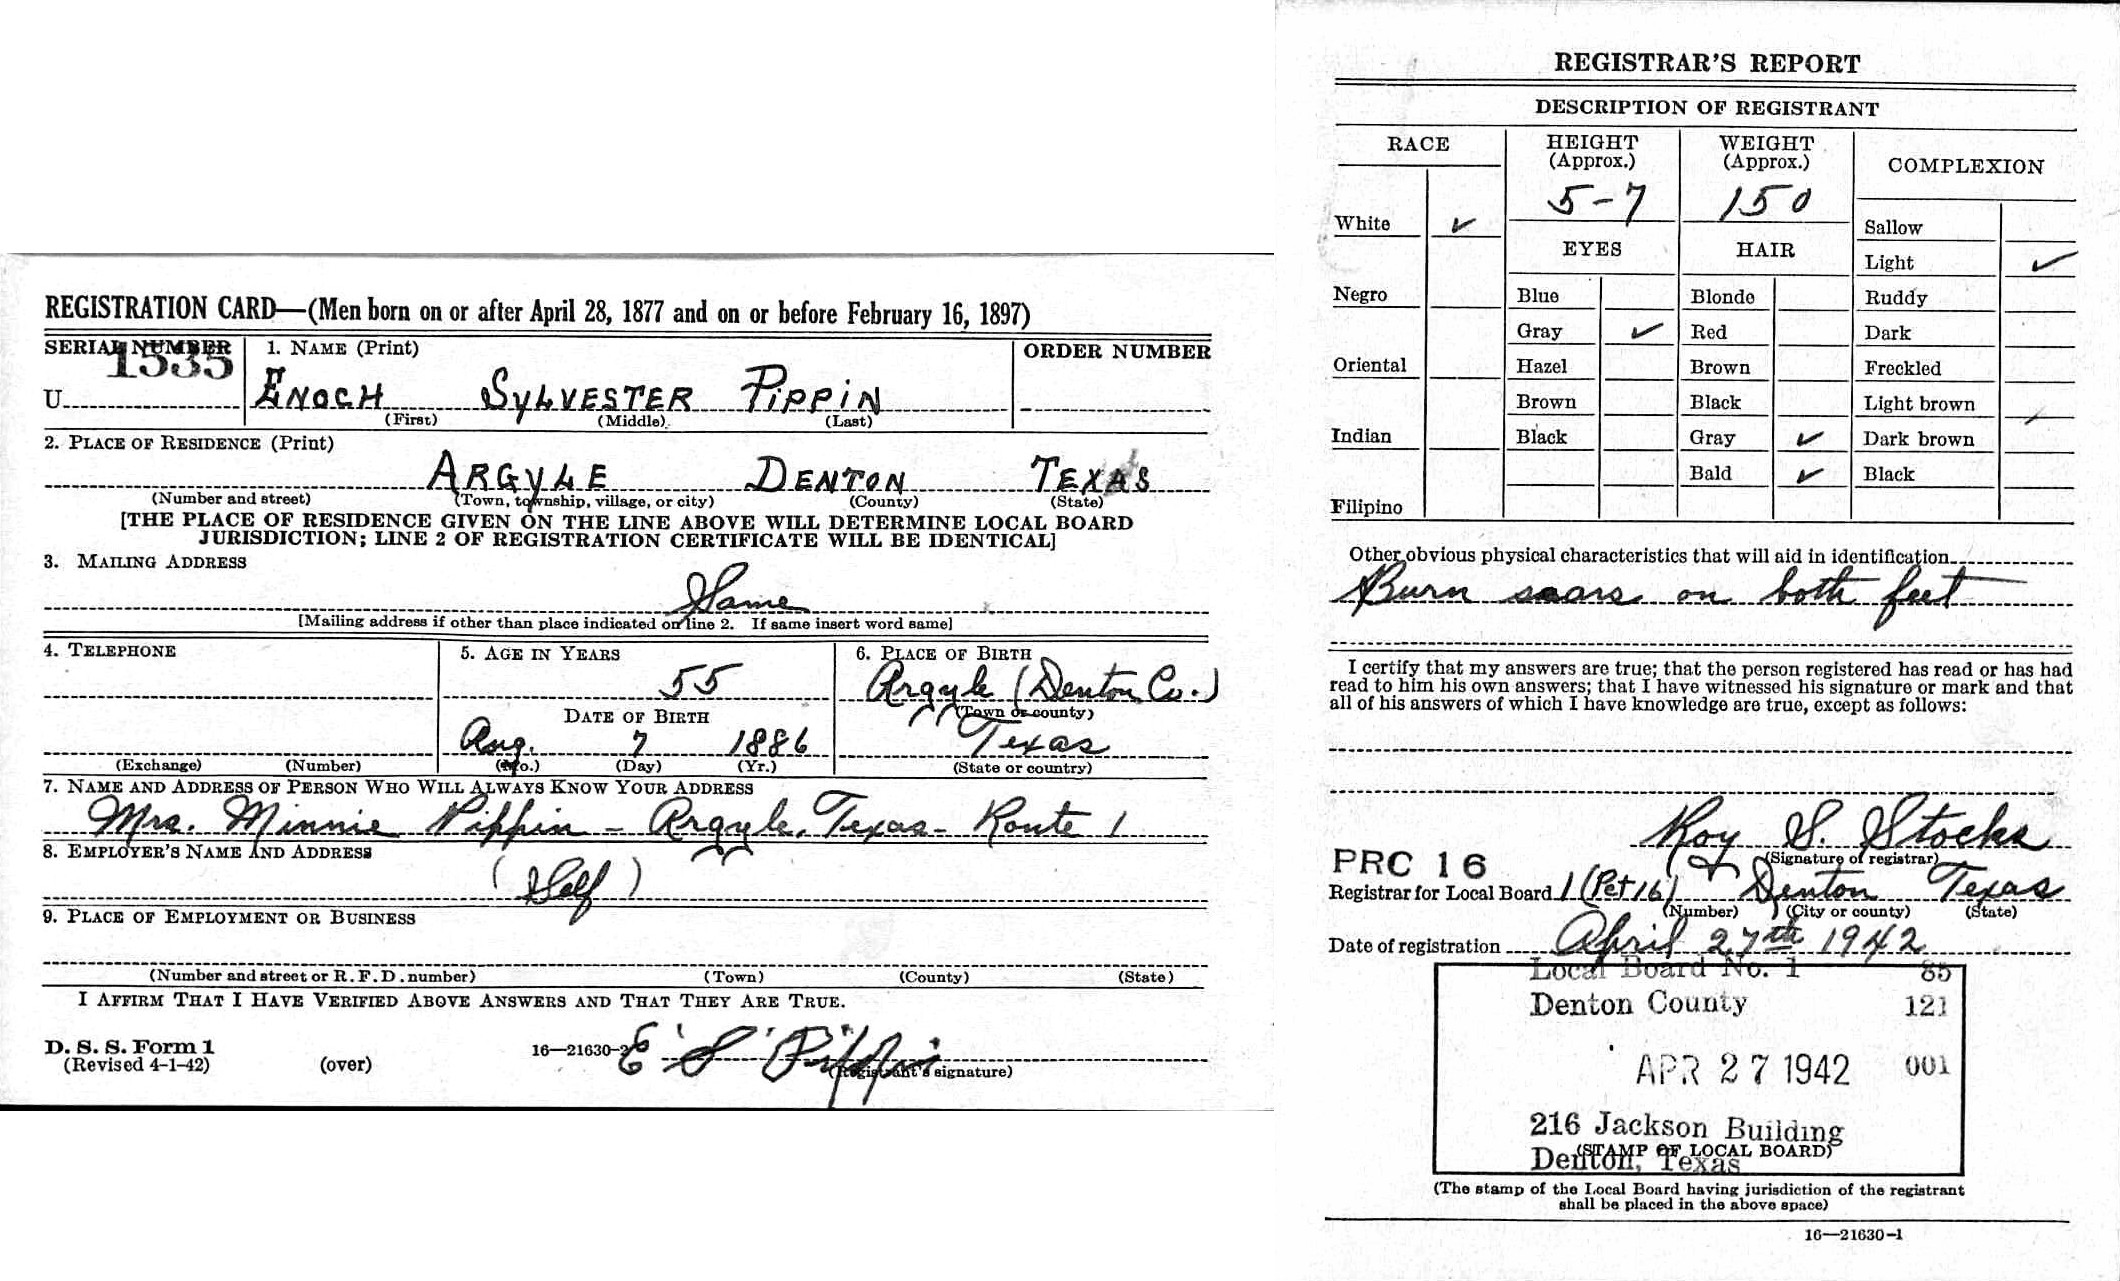 REGISTRATION CARD—(Men born on or after April 28, 1877 and on or before February 16, 1897)
SERIAL NUMBER 1. NAME (Print) ORDER NUMBER
1535
U ENOCH SYLVESTER PIPPIN
(First) (Middle) (Last)
2. PLACE OF RESIDENCE (Print)
ARGYLE DENTON TEXAS
(Number and street) (Town, township, village, or city) (County) (State)
[THE PLACE OF RESIDENCE GIVEN ON THE LINE ABOVE WILL DETERMINE LOCAL BOARD
JURISDICTION; LINE 2 OF REGISTRATION CERTIFICATE WILL BE IDENTICAL]
3. MAILING ADDRESS
Same
[Mailing address if other than place indicated on line 2. If same insert word same]
4. TELEPHONE 5. AGE IN YEARS 6. PLACE OF BIRTH
55 Argyle (Denton Co.)
DATE OF BIRTH (Town or county)
Aug. 7 1886 Texas
(Exchange) (Number) (Mo.) (Day) (Yr.) (State or country)
7. NAME AND ADDRESS OF PERSON WHO WILL ALWAYS KNOW YOUR ADDRESS
Mrs. Minnie Pippin - Argyle, Texas - Route 1
8. EMPLOYER'S NAME AND ADDRESS
(Self)
9. PLACE OF EMPLOYMENT OR BUSINESS
(Number and street or R. F. D. number) (Town) (County) (State)
I AFFIRM THAT I HAVE VERIFIED ABOVE ANSWERS AND THAT THEY ARE TRUE.
D. S. S. Form 1
(Revised 4-1-42) (over) 16—21630-2 E S Pippin
(Registrant's signature)
REGISTRAR'S REPORT
DESCRIPTION OF REGISTRANT
RACE HEIGHT (Approx.) WEIGHT (Approx.) COMPLEXION
5-7 150
White ✓ Sallow
EYES HAIR
Light ✓
Negro Blue Blonde Ruddy
Gray ✓ Red Dark
Oriental Hazel Brown Freckled
Brown Black Light brown
Indian Black Gray ✓ Dark brown
Bald ✓ Black
Filipino
Other obvious physical characteristics that will aid in identification
Burn scars on both feet
I certify that my answers are true; that the person registered has read or has had
read to him his own answers; that I have witnessed his signature or mark and that
all of his answers of which I have knowledge are true, except as follows:
Roy S. Stocks
(Signature of registrar)
PRC 16
Registrar for Local Board 1 (Pct 16) Denton Texas
(Number) (City or county) (State)
Date of registration April 27th 1942
Local Board No. 1 85
Denton County 121
APR 27 1942 001
216 Jackson Building
Denton, Texas
(STAMP OF LOCAL BOARD)
(The stamp of the Local Board having jurisdiction of the registrant
shall be placed in the above space)
16—21630-1